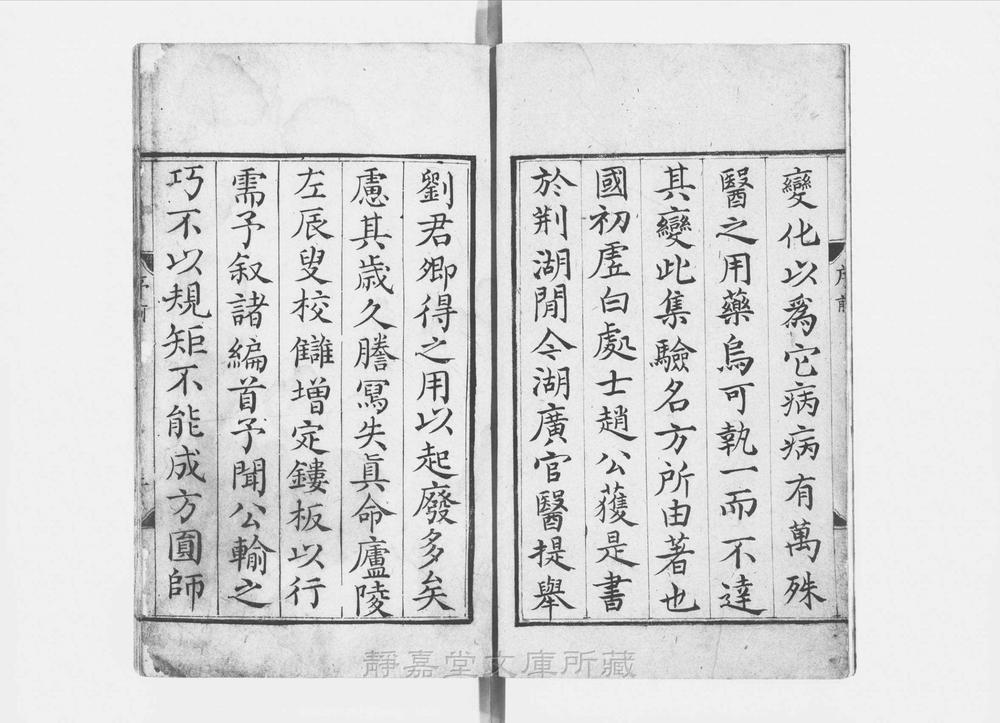 變化以爲它病病有萬殊
醫之用藥烏可執一而不達
其變此集驗名方所由著也
國初虗白處士趙公獲是書
於荆湖閒今湖廣官醫提舉
劉君卿得之用以起廢多矣
慮其歲久謄寫失眞命廬陵
左辰叟校讎增定鏤板以行
需予叙諸編首予聞公輸之
巧不以規矩不能成方圓師
序前
靜嘉堂文庫所藏